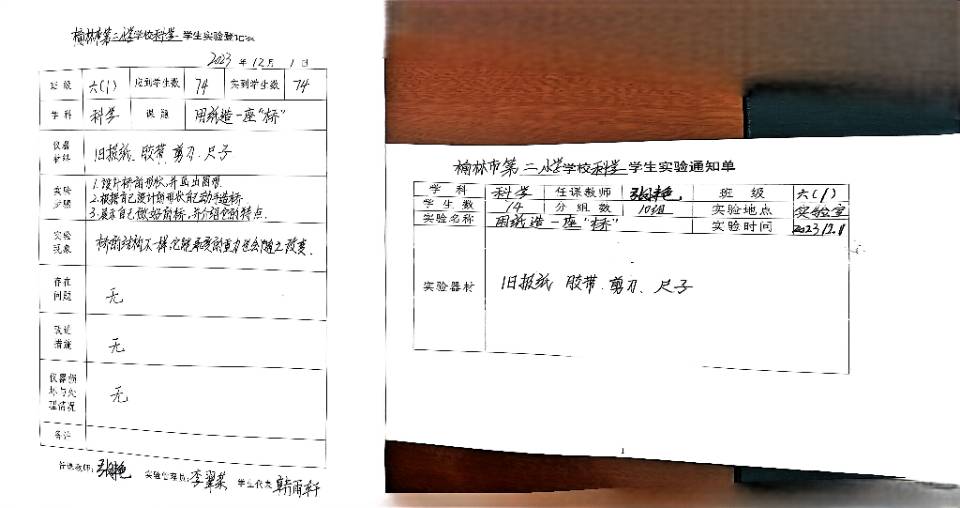 榆林市第二小学学校科学学生实验记录
2023年12月1日
班级 六(1) 应到学生数 74 实到学生数 74
学科 科学 课题 用纸造一座“桥”
仪器
旧报纸、胶带、剪刀、尺子
实验步骤
1.设计桥的形状,并画出图形.
2.根据自己设计的形状自己动手造桥.
3.展示自己做好的桥,并介绍它的特点.
实验现象
桥的结构不一样,它能承受的重力也会随之改变.
存在问题 无
改进措施 无
仪器损坏与处理情况 无
备注
任课教师: 实验管理员:李翠荣 学生代表:韩雨轩
榆林市第二小学学校科学学生实验通知单
学科 科学 任课教师 班级 六(1)
学生数 74 分组数 10组 实验地点 实验室
实验名称 用纸造一座“桥” 实验时间 2023.12.1
实验器材 旧报纸 胶带、剪刀、尺子
1